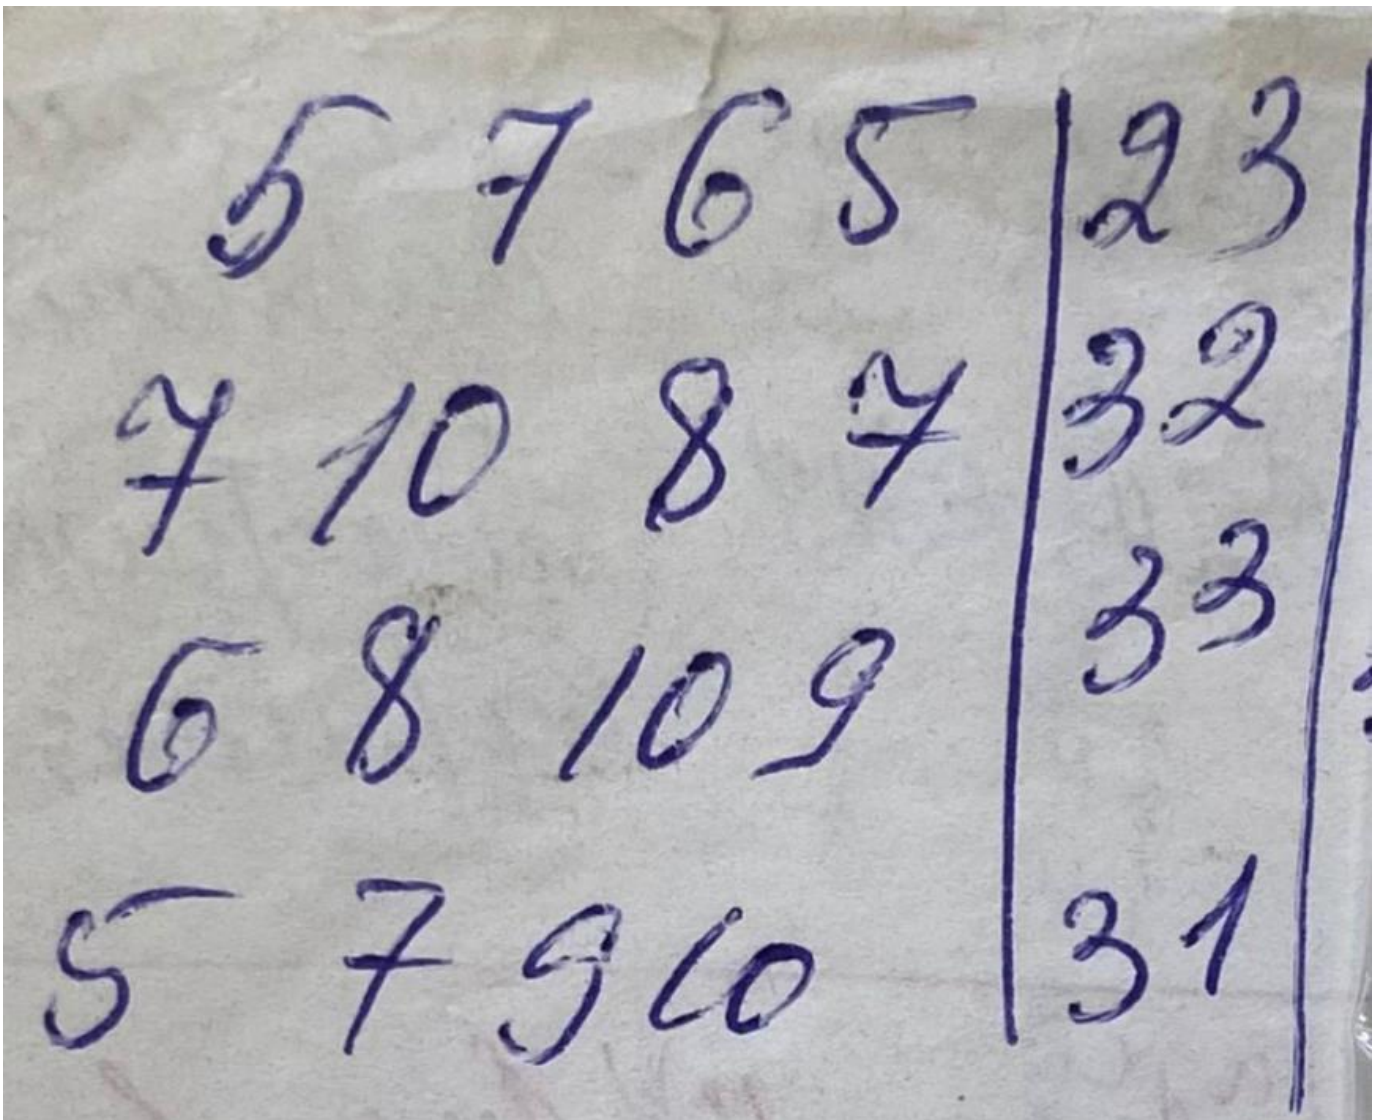 5 7 6 5 | 23 |
7 10 8 7 | 32 |
6 8 10 9 | 33 |
5 7 9 10 | 31 |